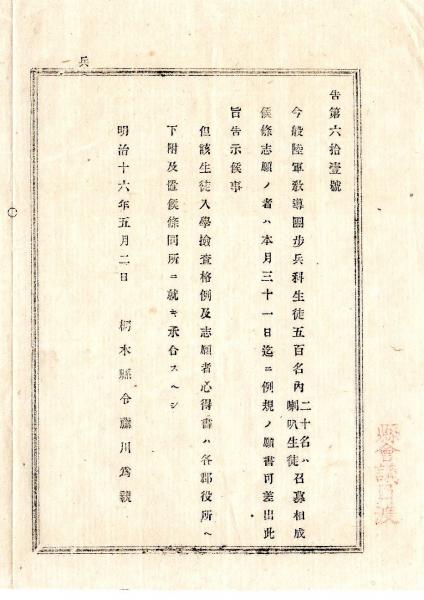 兵
告第六拾壹號
今般陸軍敎導團步兵科生徒五百名內二十名ハ喇叭生徒召募相成
候條志願ノ者ハ本月三十一日迄ニ例規ノ願書可差出此
旨告示候事
但該生徒入學撿査格例及志願者心得書ハ各郡役所ヘ
下附及置候條同所ニ就キ承合スヘシ
明治十六年五月二日
栃木縣令藤川爲親
縣會議員渡